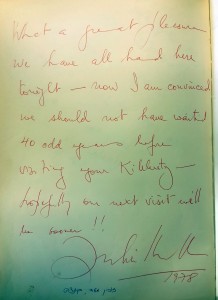 What a great pleasure
we have all had here
tonight - now I am convinced
we should not have waited
40 odd years before
visiting your Kibbutz -
hopefully our next visit will
be sooner !!
1978